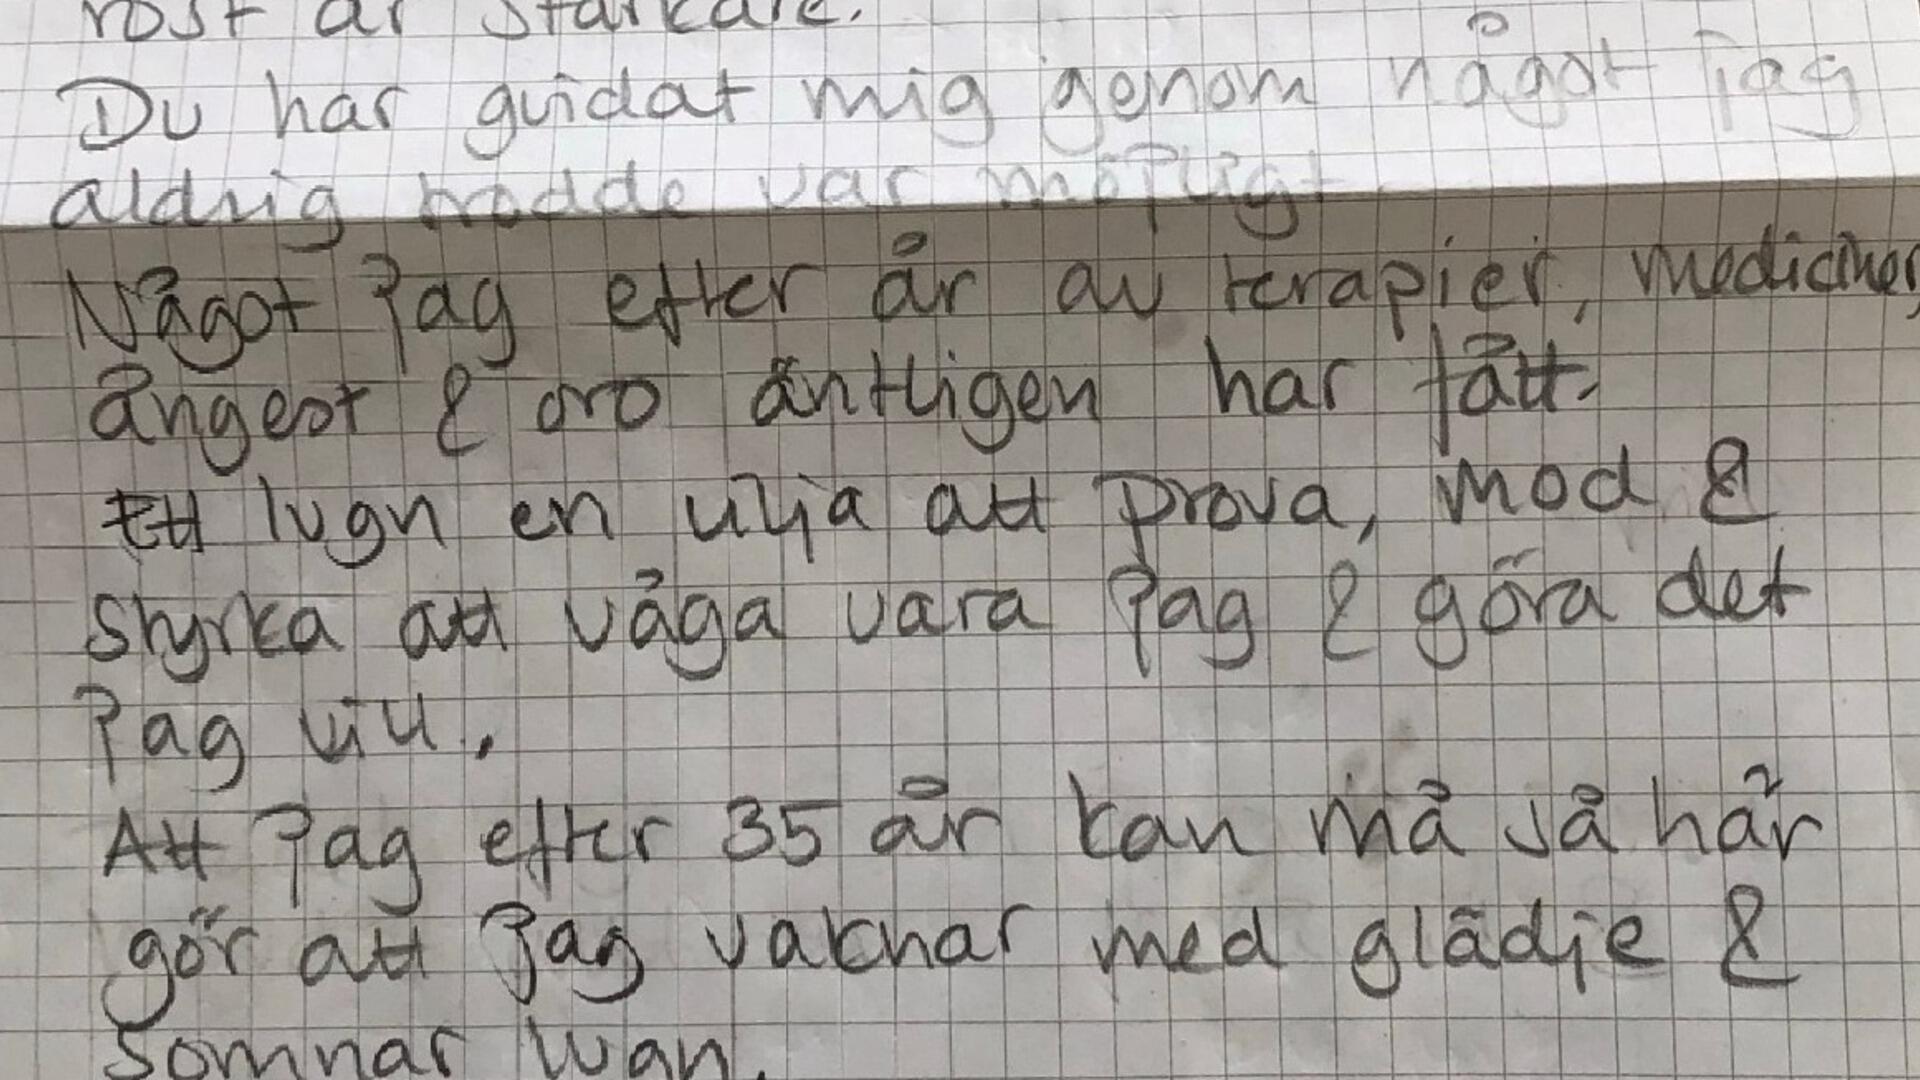 röst är starkare.
Du har guidat mig genom något jag
aldrig trodde var möjligt
Något jag efter år av terapier, mediciner,
ångest & oro äntligen har fått.
Ett lugn en vilja att prova, mod &
styrka att våga vara jag & göra det
jag vill.
Att jag efter 35 år kan må så här
gör att jag vaknar med glädje &
somnar lugn.